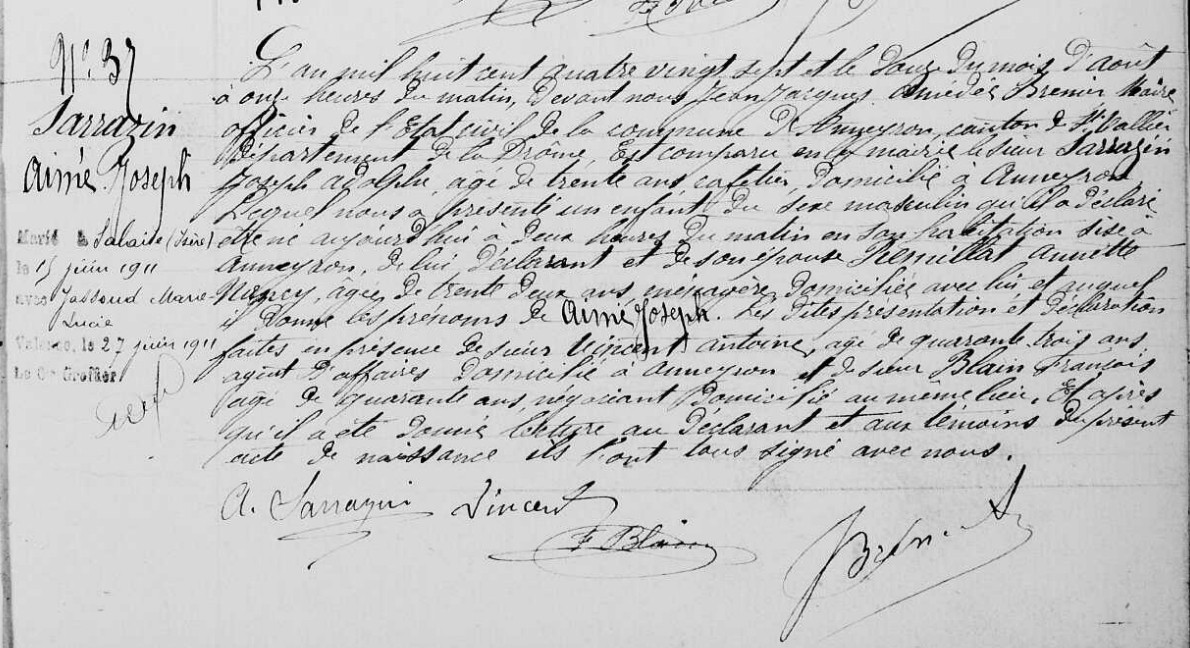 N° 37
Sarrazin
Aimé Joseph
Marié à Salaise (Isère)
le 15 juin 1911
avec Jassoud Marie
Lucie
Valence, le 27 juin 1911
Le Cis Greffier
L'an mil huit cent quatre vingt sept et le douze du mois d'août
à onze heures du matin, devant nous Jean Jacques Amédée Maire
officier de l'Etat civil de la commune d'Anneyron, canton de St Vallier
département de la Drôme, Est comparu en mairie le sieur Sarrazin
Joseph Adolphe, agé de trente ans, cafetier, domicilié à Anneyron
Lequel nous a présenté un enfant du sexe masculin qu'il a déclaré
être né aujourd'hui à deux heures du matin en son habitation sise à
Anneyron, de lui déclarant et de son épouse Remillat Annette
Nancy, agée de trente deux ans, ménagère, domiciliée avec lui et auquel
il donne les prénoms de Aimé Joseph. Les dites présentation et déclaration
faites en présence de sieur Vincent Antoine, agé de quarante trois ans
agent d'affaires domicilié à Anneyron et de sieur Blain François
agé de quarante ans, négociant domicilié au même lieu, Et après
qu'il a été donné lecture au déclarant et aux témoins du présent
acte de naissance ils l'ont tous signé avec nous.
A. Sarrazin Vincent
F Blain